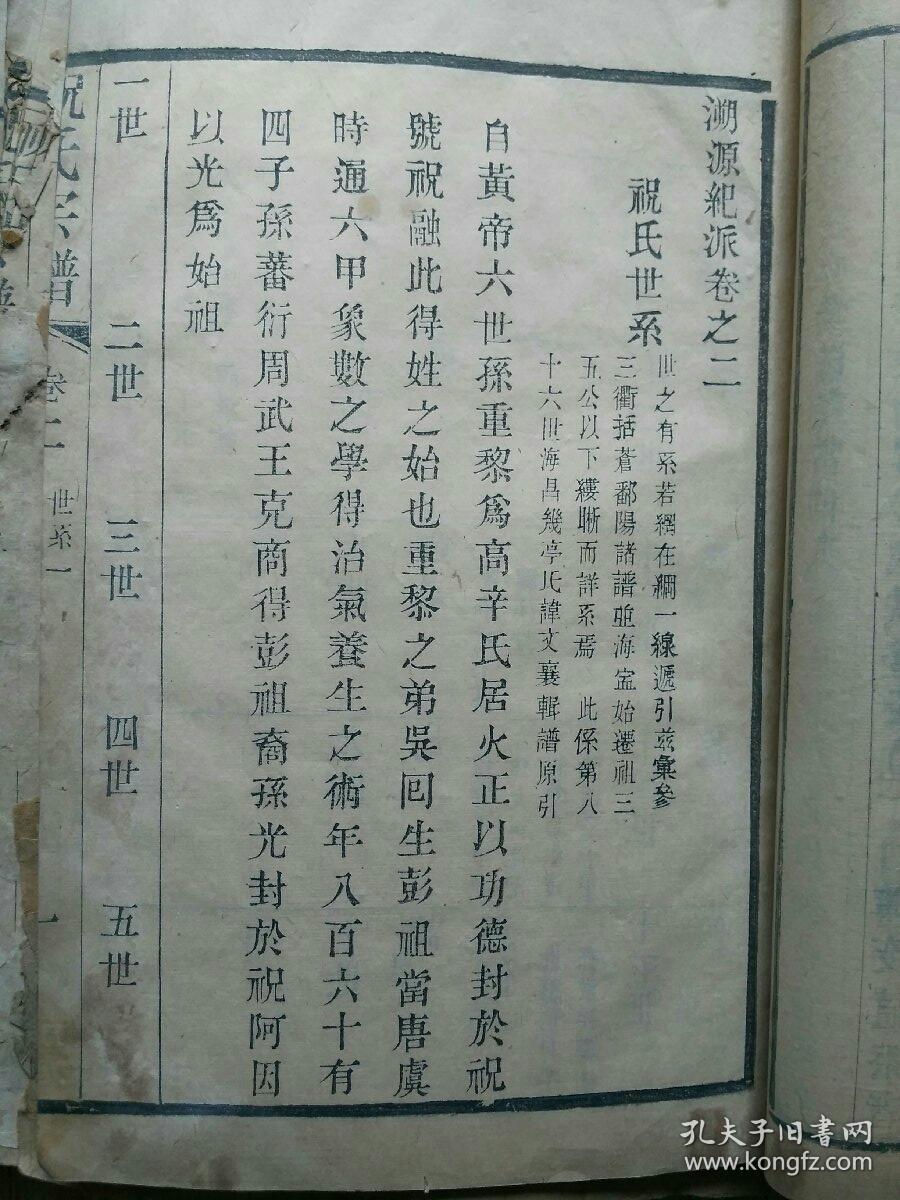 溯源紀派卷之二
祝氏世系
世之有系若網在綱一線遞引茲彙參
三衢括蒼鄱陽諸譜並海寍始遷祖三
五公以下縷晰而詳系焉 此係第八
十六世海昌幾亭氏諱文襄輯譜原引
自黃帝六世孫重黎爲高辛氏居火正以功德封於祝
號祝融此得姓之始也重黎之弟吳回生彭祖當唐虞
時通六甲象數之學得治氣養生之術年八百六十有
四子孫蕃衍周武王克商得彭祖裔孫光封於祝阿因
以光爲始祖
一世 二世 三世 四世 五世
祝氏宗譜 卷二 世系一 一
孔夫子旧书网
www.kongfz.com